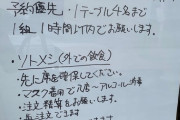 予約優先・1テーブル4名まで
1組 1時間以内でお願いします。
・ソトノミ(外での飲食)
・先に席を確保してください。
・マスク着用で入店〜アルコール消毒
・注文 精算をお願いします。
注文できます